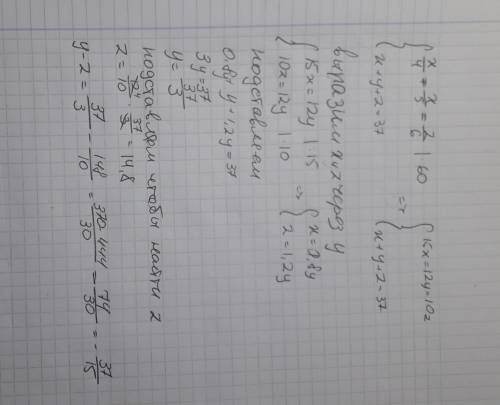 { x/4 = y/5 = z/6 | 60 => { 15x=12y=10z
{ x+y+z=37 { x+y+z=37
выразим x и z через y
{ 15x=12y | :15 => { x=0,8y
{ 10z=12y | :10 { z=1,2y
подставляем
0,8y+y+1,2y=37
3y=37
y= 37/3
подставляем чтобы найти z
z= 12/10 · 37/3 =14,8
y-z= 37/3 - 148/10 = 370-444/30 = - 74/30 = - 37/15